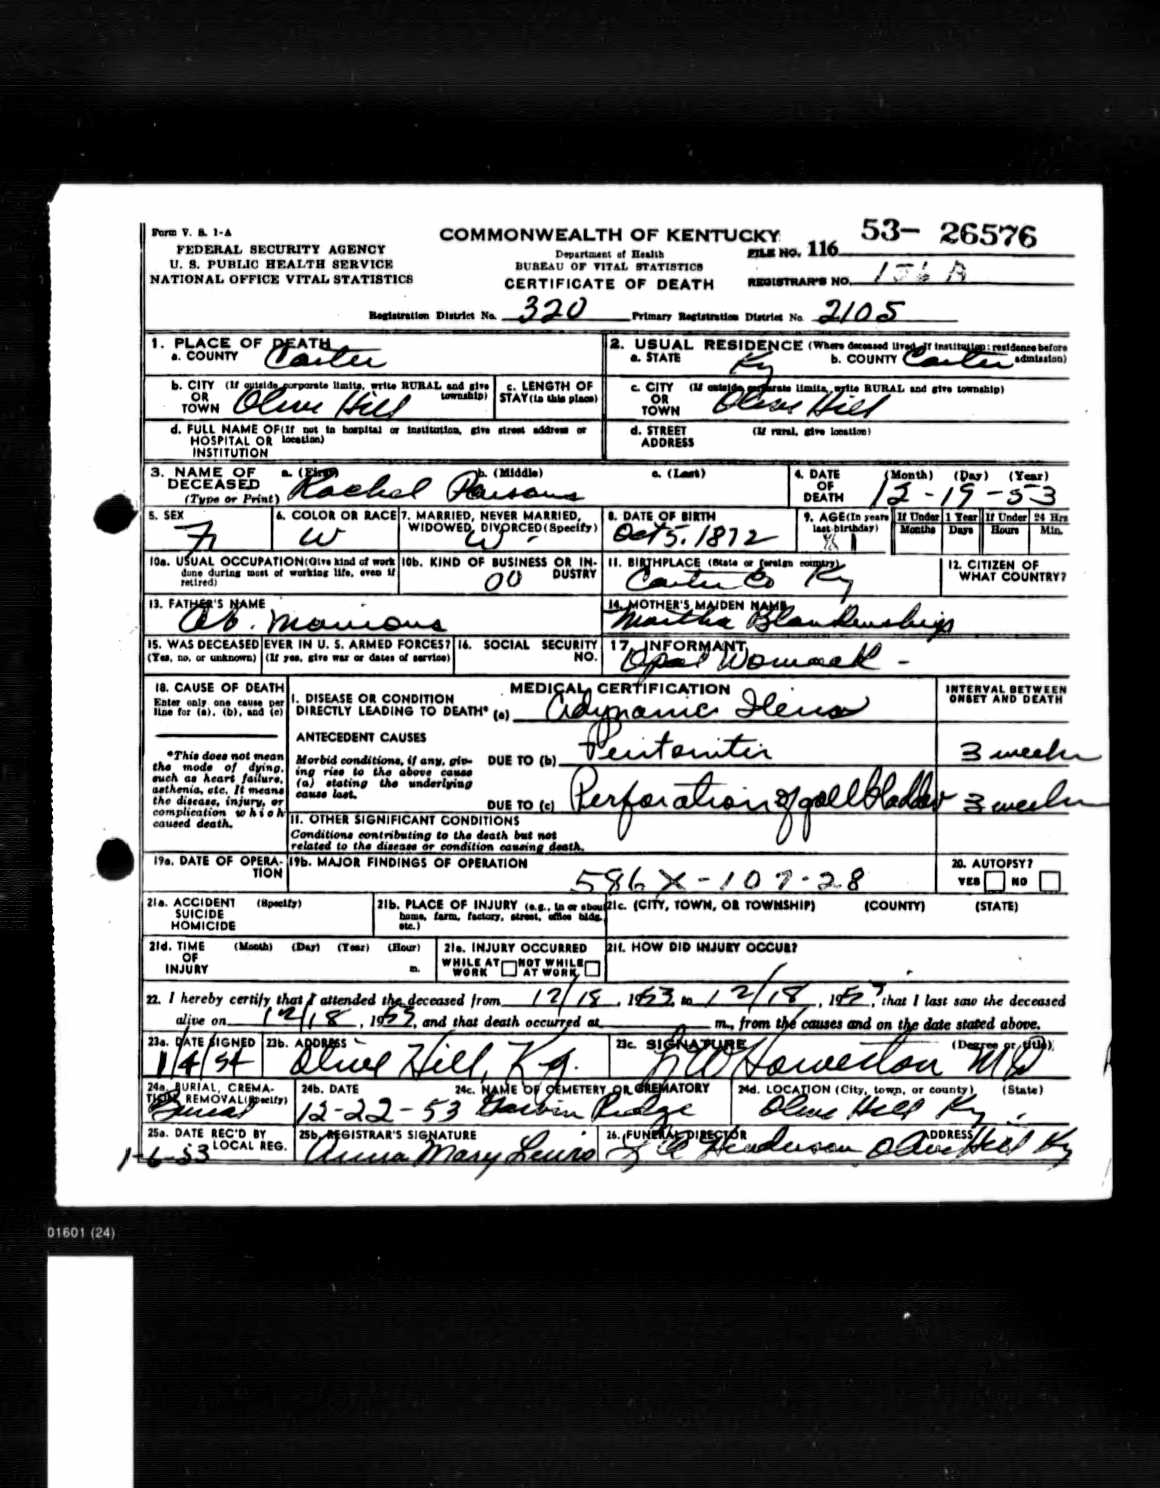 Form V. S. 1-A
FEDERAL SECURITY AGENCY
U. S. PUBLIC HEALTH SERVICE
NATIONAL OFFICE VITAL STATISTICS
COMMONWEALTH OF KENTUCKY
Department of Health
BUREAU OF VITAL STATISTICS
CERTIFICATE OF DEATH
FILE NO. 116 53- 26576
REGISTRAR'S NO.
Registration District No. 320 Primary Registration District No. 2105
1. PLACE OF DEATH
a. COUNTY Carter
2. USUAL RESIDENCE (Where deceased lived. If institution: residence before admission)
a. STATE Ky b. COUNTY Carter
b. CITY (If outside corporate limits, write RURAL and give township)
OR
TOWN Olive Hill
c. LENGTH OF
STAY (in this place)
c. CITY (If outside corporate limits, write RURAL and give township)
OR
TOWN Olive Hill
d. FULL NAME OF (If not in hospital or institution, give street address or location)
HOSPITAL OR
INSTITUTION
d. STREET (If rural, give location)
ADDRESS
3. NAME OF DECEASED (Type or Print)
a. (First) b. (Middle) c. (Last)
Rachel Parsons
4. DATE OF DEATH (Month) (Day) (Year)
12-19-53
5. SEX
F
6. COLOR OR RACE
W
7. MARRIED, NEVER MARRIED, WIDOWED, DIVORCED (Specify)
W
8. DATE OF BIRTH
Oct 5. 1872
9. AGE (In years last birthday)
81
If Under 1 Year If Under 24 Hrs
Months Days Hours Min.
10a. USUAL OCCUPATION (Give kind of work done during most of working life, even if retired)
10b. KIND OF BUSINESS OR INDUSTRY
00
11. BIRTHPLACE (State or foreign country)
Carter Co Ky
12. CITIZEN OF WHAT COUNTRY?
13. FATHER'S NAME
Ab.
14. MOTHER'S MAIDEN NAME
Martha Blankenships
15. WAS DECEASED EVER IN U. S. ARMED FORCES?
(Yes, no, or unknown) (If yes, give war or dates of service)
16. SOCIAL SECURITY NO.
17. INFORMANT
Opal Womack -
18. CAUSE OF DEATH
Enter only one cause per line for (a), (b), and (c)
*This does not mean the mode of dying, such as heart failure, asthenia, etc. It means the disease, injury, or complication which caused death.
MEDICAL CERTIFICATION
INTERVAL BETWEEN ONSET AND DEATH
I. DISEASE OR CONDITION
DIRECTLY LEADING TO DEATH* (a) Adynamic Ileus
ANTECEDENT CAUSES
Morbid conditions, if any, giving rise to the above cause (a) stating the underlying cause last.
DUE TO (b) Peritonitis 3 weeks
DUE TO (c) Perforation of gall bladder 3 weeks
II. OTHER SIGNIFICANT CONDITIONS
Conditions contributing to the death but not related to the disease or condition causing death.
19a. DATE OF OPERATION
19b. MAJOR FINDINGS OF OPERATION
586X-107-28
20. AUTOPSY?
YES NO
21a. ACCIDENT (Specify)
SUICIDE
HOMICIDE
21b. PLACE OF INJURY (e.g., in or about home, farm, factory, street, office bldg. etc.)
21c. (CITY, TOWN, OR TOWNSHIP) (COUNTY) (STATE)
21d. TIME (Month) (Day) (Year) (Hour)
OF
INJURY m.
21e. INJURY OCCURRED
WHILE AT WORK NOT WHILE AT WORK
21f. HOW DID INJURY OCCUR?
22. I hereby certify that I attended the deceased from 12/18, 1953, to 12/18, 1953, that I last saw the deceased
alive on 12/18, 1953, and that death occurred at m., from the causes and on the date stated above.
23a. DATE SIGNED
1/4/54
23b. ADDRESS
Olive Hill, Ky.
23c. SIGNATURE (Degree or title)
Howerton MD
24a. BURIAL, CREMATION, REMOVAL (Specify)
Burial
24b. DATE
12-22-53
24c. NAME OF CEMETERY OR CREMATORY
Garvin Ridge
24d. LOCATION (City, town, or county) (State)
Olive Hill Ky.
25a. DATE REC'D BY LOCAL REG.
1-6-53
25b. REGISTRAR'S SIGNATURE
Anna Mary Lewis
26. FUNERAL DIRECTOR ADDRESS
Henderson Olive Hill Ky
01601 (24)